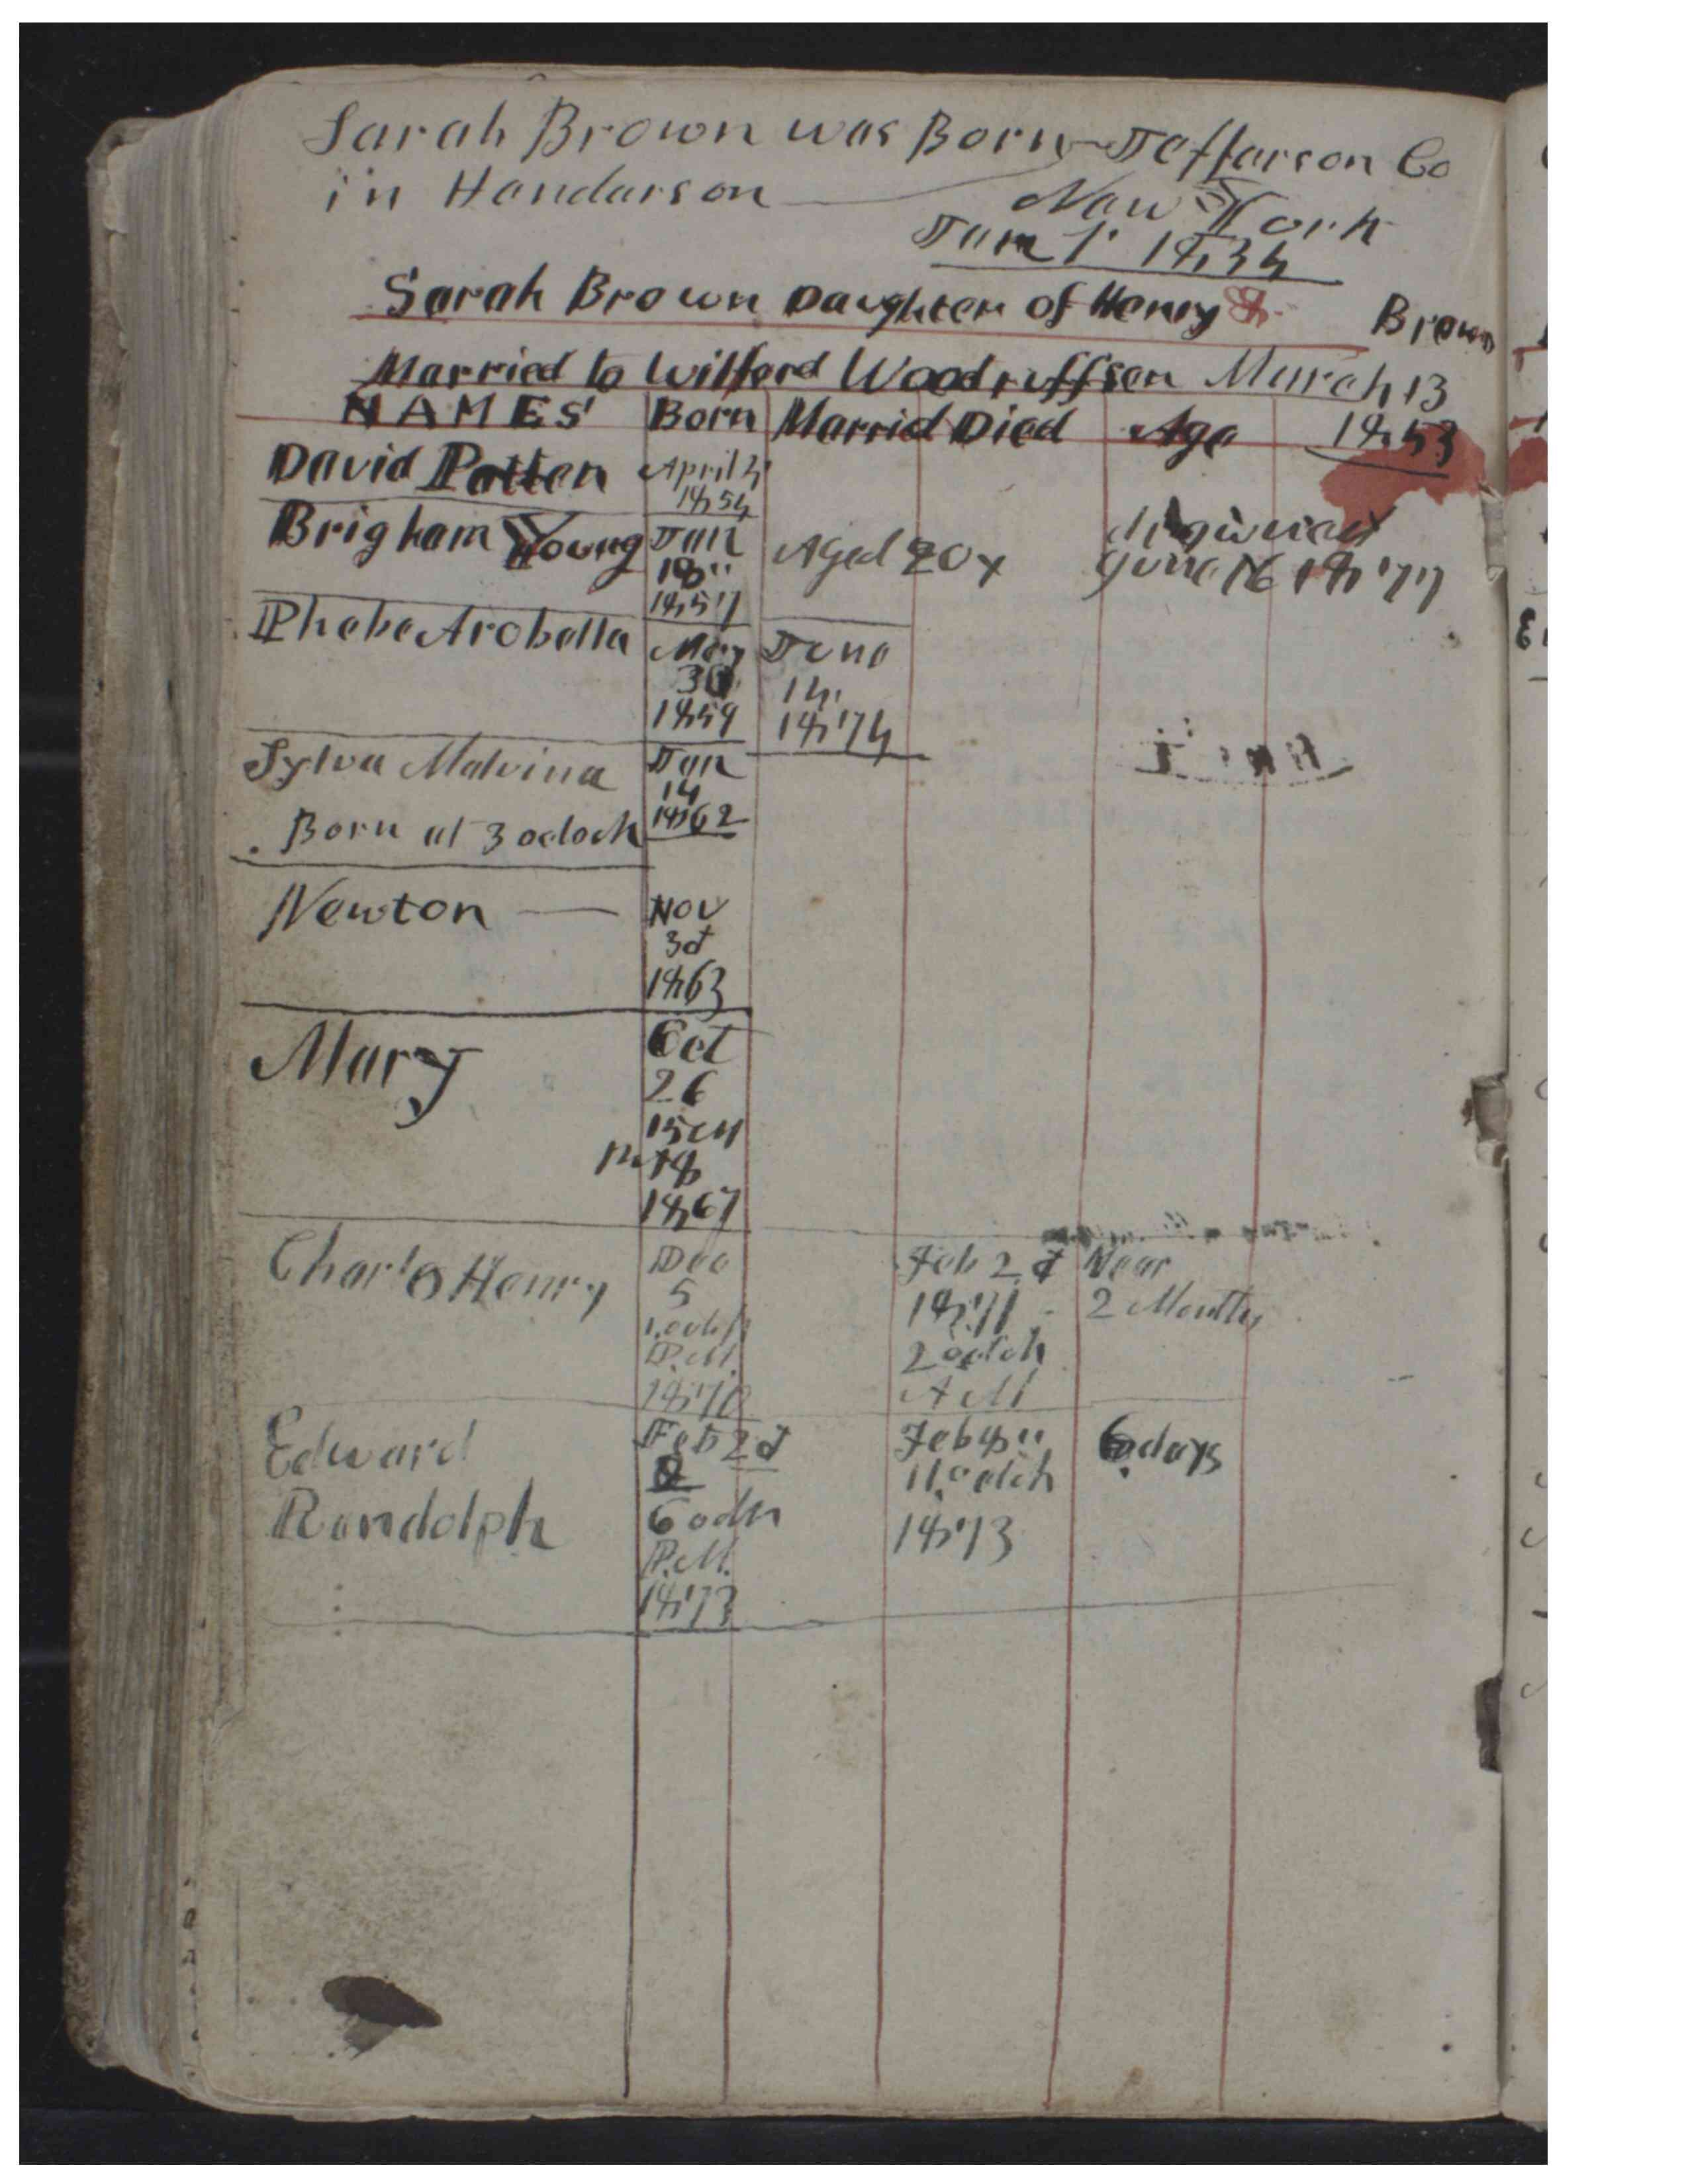 Sarah Brown was Born Jefferson Co
in Henderson
New York
Jan 1st 1834
Sarah Brown Daughter of Henry Brown
Married to Wilford Woodruff sen March 13
NAMES Born Married Died Age 1853
David Patten April 4 1854
Brigham Young Jan 18" 1857 Aged 20 y drowned June 16 1877
Phebe Arabella May 30 1859 June 14. 1874
Sylva Malvina Jan 14 1862
Born at 3 oclock
Newton Nov 3d 1863
Mary Oct 26 1867
Charls Henry Dec 5 1.oclk P.M. 1870 Feb 2d 1871 2 oclck A M Near 2 Months
Edward Randolph Feb 2d 6 oclk P.M. 1873 Feb 8" 11.oclck 1873 6 days